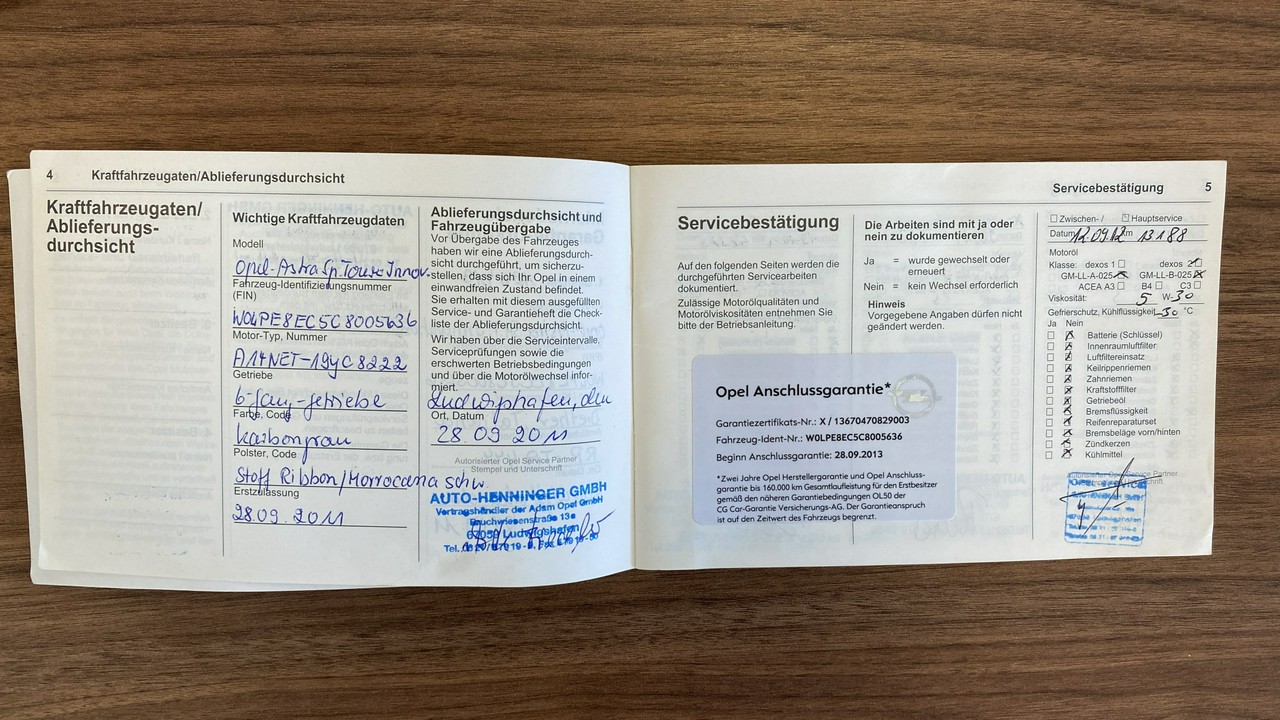 4 Kraftfahrzeugaten/Ablieferungsdurchsicht
Kraftfahrzeugaten/
Ablieferungs-
durchsicht
Wichtige Kraftfahrzeugdaten
Modell
Opel-Astra Sp Tourer Innov.
Fahrzeug-Identifizierungsnummer
(FIN)
W0LPE8EC5C8005636
Motor-Typ, Nummer
A14NET-19YC8222
Getriebe
6-Gang-Getriebe
Farbe, Code
Karbongrau
Polster, Code
Stoff Ribbon/Morrocana schw.
Erstzulassung
28.09.2011
Ablieferungsdurchsicht und
Fahrzeugübergabe
Vor Übergabe des Fahrzeuges
haben wir eine Ablieferungsdurch-
sicht durchgeführt, um sicherzu-
stellen, dass sich Ihr Opel in einem
einwandfreien Zustand befindet.
Sie erhalten mit diesem ausgefüllten
Service- und Garantieheft die Check-
liste der Ablieferungsdurchsicht.
Wir haben über die Serviceintervalle,
Serviceprüfungen sowie die
erschwerten Betriebsbedingungen
und über die Motorölwechsel infor-
miert.
Ludwigshafen, den
Ort, Datum
28.09.2011
Autorisierter Opel Service Partner
Stempel und Unterschrift
AUTO-HENNINGER GMBH
Vertragshändler der Adam Opel GmbH
Bruchwiesenstraße 13a
67059 Ludwigshafen
Servicebestätigung 5
Servicebestätigung
Auf den folgenden Seiten werden die
durchgeführten Servicearbeiten
dokumentiert.
Zulässige Motorölqualitäten und
Motorölviskositäten entnehmen Sie
bitte der Betriebsanleitung.
Die Arbeiten sind mit ja oder
nein zu dokumentieren
Ja = wurde gewechselt oder
erneuert
Nein = kein Wechsel erforderlich
Hinweis
Vorgegebene Angaben dürfen nicht
geändert werden.
Opel Anschlussgarantie*
Garantiezertifikats-Nr.: X / 13670470829003
Fahrzeug-Ident-Nr.: W0LPE8EC5C8005636
Beginn Anschlussgarantie: 28.09.2013
*Zwei Jahre Opel Herstellergarantie und Opel Anschluss-
garantie bis 160.000 km Gesamtlaufleistung für den Erstbesitzer
gemäß den näheren Garantiebedingungen OL50 der
CG Car-Garantie Versicherungs-AG. Der Garantieanspruch
ist auf den Zeitwert des Fahrzeugs begrenzt.
Zwischen- / Hauptservice
Datum 12.09.12 km 13188
Motoröl
Klasse: dexos 1 dexos 2
GM-LL-A-025 GM-LL-B-025
ACEA A3 B4 C3
Viskosität: 5 W-30
Gefrierschutz, Kühlflüssigkeit -30 °C
Ja Nein
Batterie (Schlüssel)
Innenraumluftfilter
Luftfiltereinsatz
Keilrippenriemen
Zahnriemen
Kraftstofffilter
Getriebeöl
Bremsflüssigkeit
Reifenreparaturset
Bremsbeläge vorn/hinten
Zündkerzen
Kühlmittel